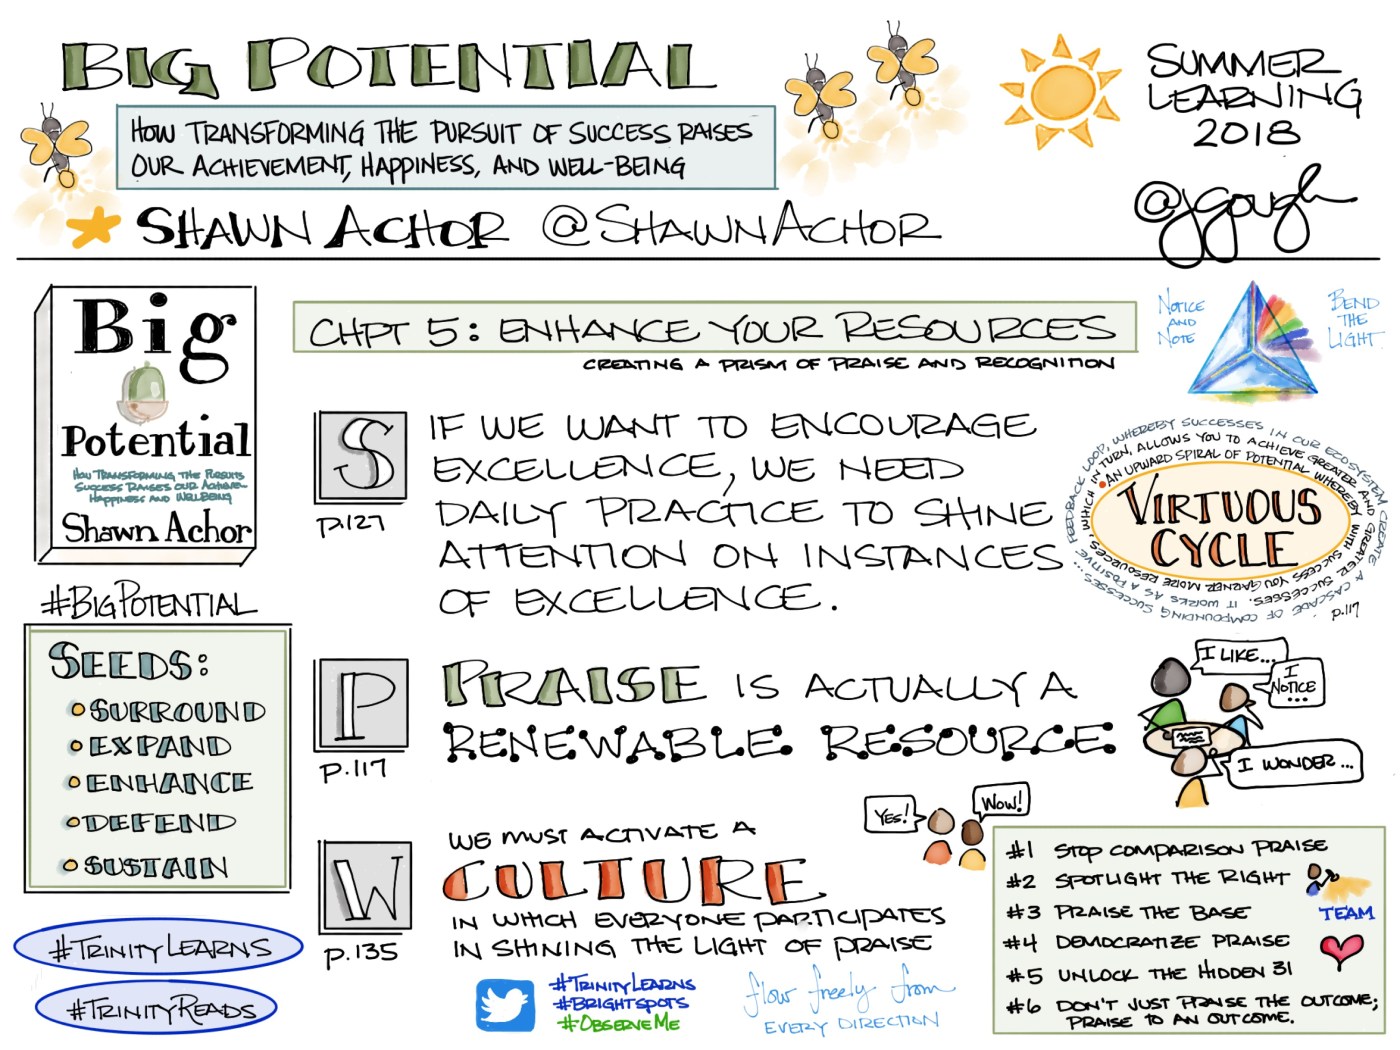 BIG POTENTIAL
HOW TRANSFORMING THE PURSUIT OF SUCCESS RAISES
OUR ACHIEVEMENT, HAPPINESS, AND WELL-BEING
SHAWN ACHOR @SHAWNACHOR
SUMMER
LEARNING
2018
@jgough
Big
Potential
HOW TRANSFORMING THE PURSUITS
SUCCESS RAISES OUR ACHIEVE-
HAPPINESS AND WELLBEING
Shawn Achor
#BIGPOTENTIAL
SEEDS:
SURROUND
EXPAND
ENHANCE
DEFEND
SUSTAIN
#TRINITYLEARNS
#TRINITYREADS
CHPT 5: ENHANCE YOUR RESOURCES
CREATING A PRISM OF PRAISE AND RECOGNITION
NOTICE
AND
NOTE
BEND
THE
LIGHT
S
p.127
IF WE WANT TO ENCOURAGE
EXCELLENCE, WE NEED
DAILY PRACTICE TO SHINE
ATTENTION ON INSTANCES
OF EXCELLENCE.
VIRTUOUS
CYCLE
AN UPWARD SPIRAL OF POTENTIAL WHEREBY WITH SUCCESS, YOU GARNER MORE RESOURCES, WHICH IN TURN, ALLOWS YOU TO ACHIEVE GREATER AND GREATER SUCCESSES. IT WORKS AS A POSITIVE FEEDBACK LOOP, WHEREBY SUCCESSES IN OUR ECOSYSTEM CREATE A CASCADE OF COMPOUNDING SUCCESSES...
p.117
P
p.117
PRAISE IS ACTUALLY A
RENEWABLE RESOURCE.
I LIKE...
I
NOTICE
...
I WONDER...
W
p.135
WE MUST ACTIVATE A
CULTURE
IN WHICH EVERYONE PARTICIPATES
IN SHINING THE LIGHT OF PRAISE
YES!
WOW!
#TRINITYLEARNS
#BRIGHTSPOTS
#OBSERVEME
flow freely from
EVERY DIRECTION
#1 STOP COMPARISON PRAISE
#2 SPOTLIGHT THE RIGHT
#3 PRAISE THE BASE
TEAM
#4 DEMOCRATIZE PRAISE
#5 UNLOCK THE HIDDEN 31
#6 DON'T JUST PRAISE THE OUTCOME;
PRAISE TO AN OUTCOME.